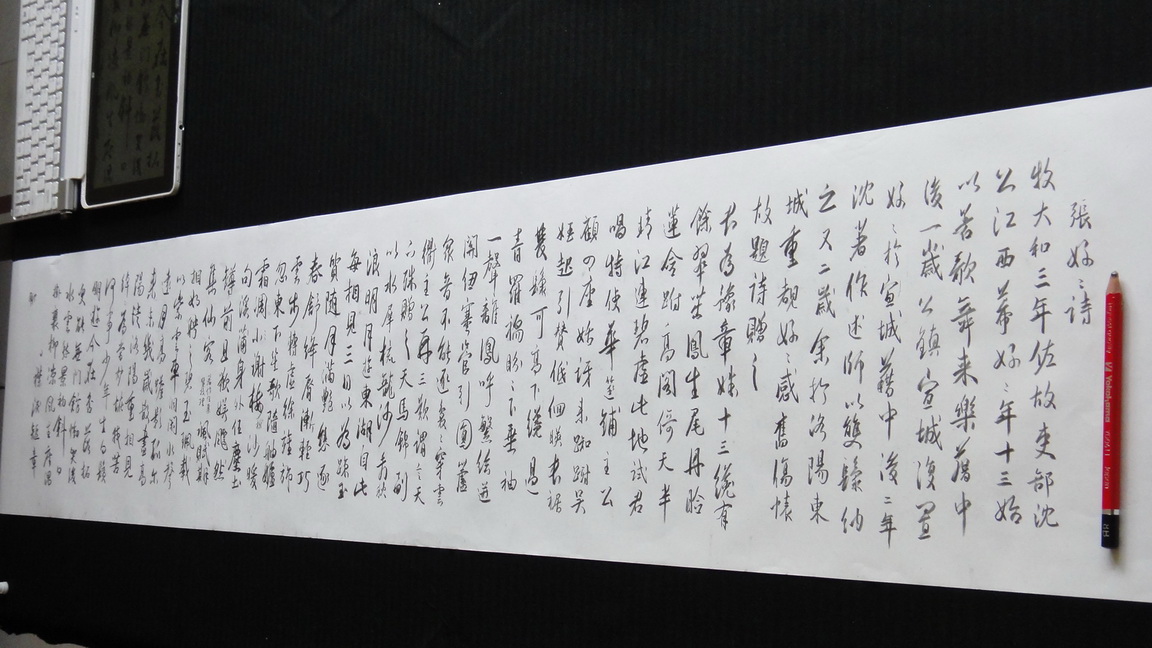 張好〻詩
牧大和三年佐故吏部沈
公江西幕好〻年十三始
以善歌舞来樂籍中
後一歲公鎮宣城復置
好〻於宣城籍中後二年
沈著作述師以雙鬟納
之又二歲余於洛陽東
城重覩好〻感舊傷懷
故題詩贈之
君為豫章姝十三纔有
餘翠茁鳳生尾丹臉
蓮含跗高閣倚天半
晴江連碧虛此地試君
唱特使華筵鋪主公
顧四座始訝来踟躕吳
娃起引贊低佪暎長裾
雙鬟可高下纔過
青羅襦盼〻下垂袖
一聲離鳳呼繁絃迸
關紐塞管引圓蘆
衆音不能逐裊〻穿雲
衢主公再三歎謂言天
下殊贈之天馬錦副
以水犀梳龍沙看秋
浪明月遊東湖自此
每相見三日以為踈玉
質随月滿艷態逐
春舒絳脣漸輕巧
雲步轉虛徐旌旆
忽東下笙歌隨舳艫
霜凋小謝樓樹沙暖
句溪蒲身外任塵土
罇前且歡娛飄然
集仙客諷賦欺
相如聘之碧玉珮載
以紫雲車洞閉水聲
遠月高蟾影孤尔
来未幾歲散盡高
陽徒洛陽重相見
綽為當壚怪我苦
何事少年生白鬚
朋遊今在否落拓
更能無門館慟哭後
水雲愁景初斜日
掛衰柳涼風生座隅
灑盡滿襟淚短章
聊